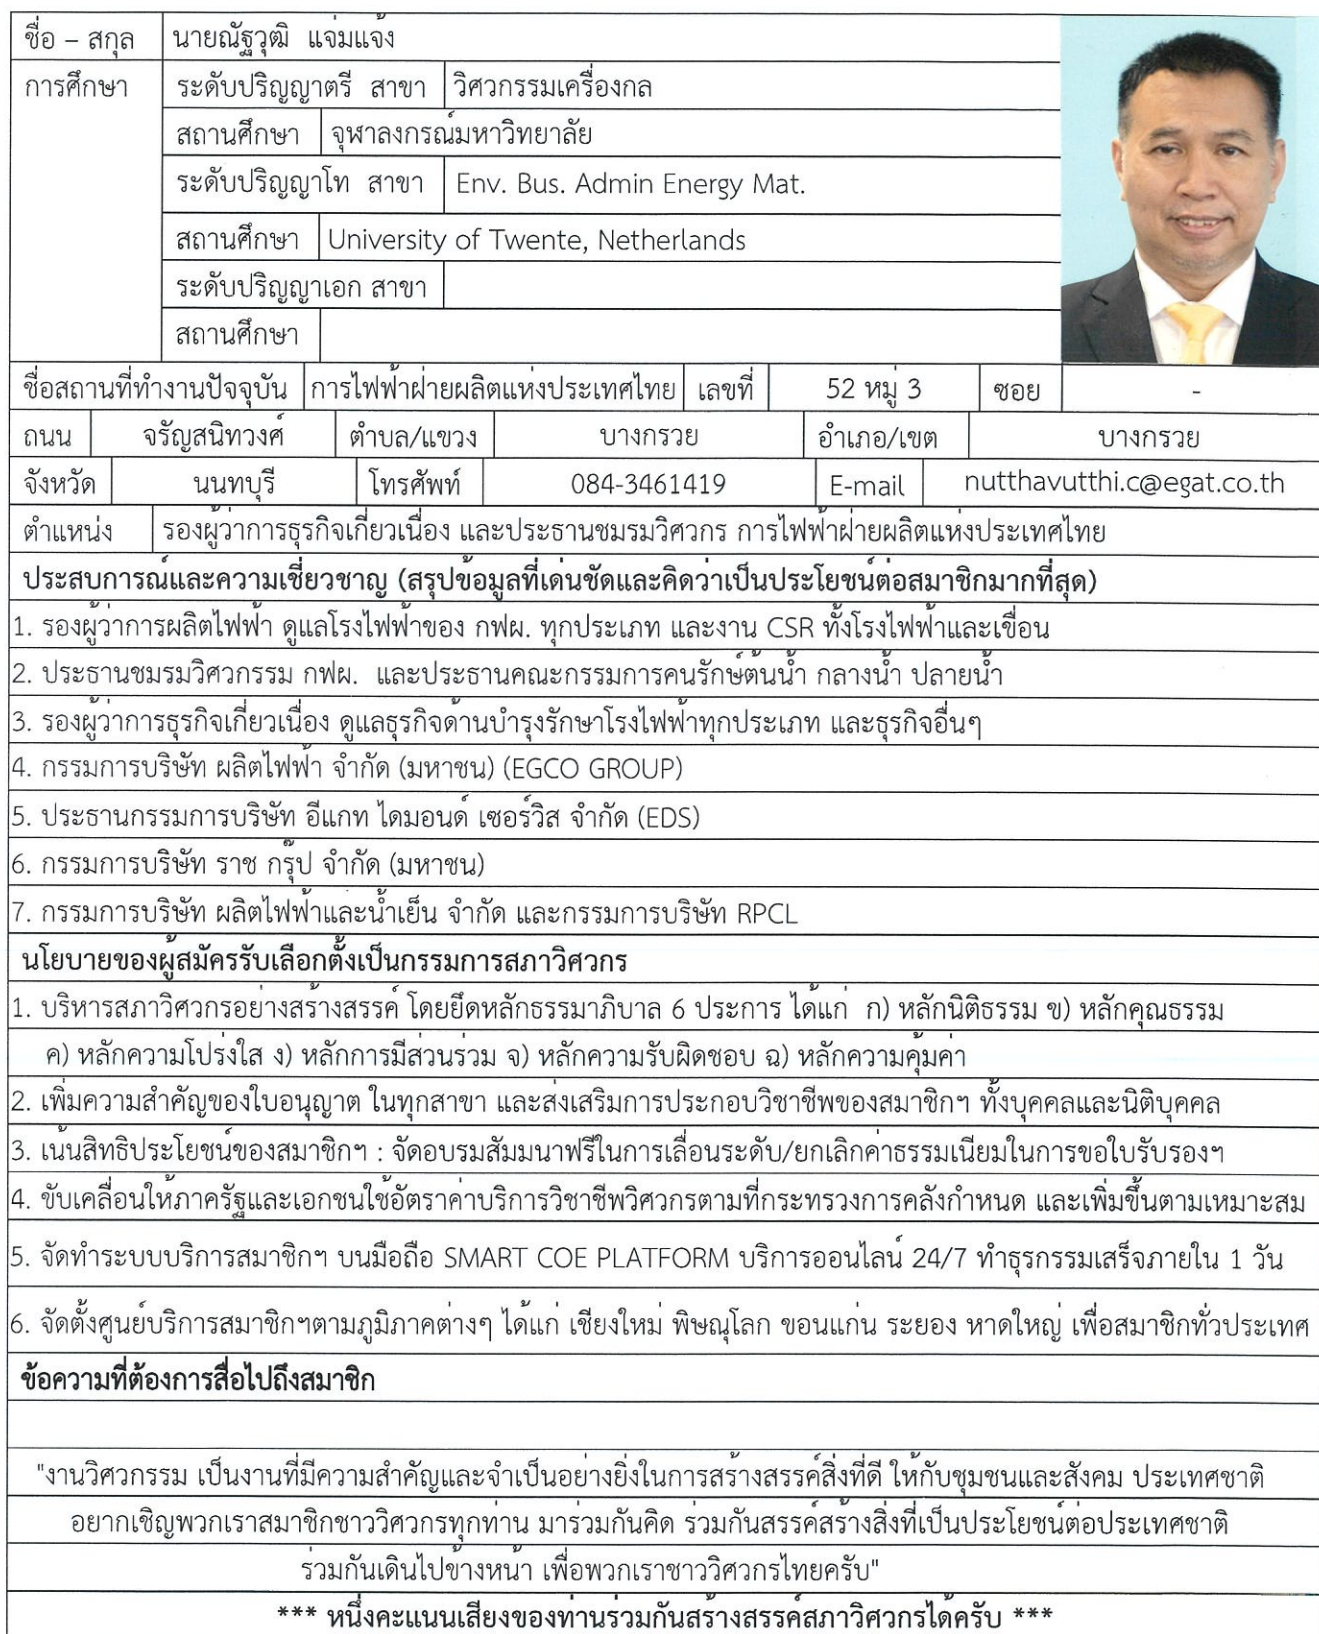 ชื่อ – สกุล นายณัฐวุฒิ แจ่มแจ้ง
การศึกษา ระดับปริญญาตรี สาขา วิศวกรรมเครื่องกล
สถานศึกษา จุฬาลงกรณ์มหาวิทยาลัย
ระดับปริญญาโท สาขา Env. Bus. Admin Energy Mat.
สถานศึกษา University of Twente, Netherlands
ระดับปริญญาเอก สาขา
สถานศึกษา
ชื่อสถานที่ทำงานปัจจุบัน การไฟฟ้าฝ่ายผลิตแห่งประเทศไทย เลขที่ 52 หมู่ 3 ซอย -
ถนน จรัญสนิทวงศ์ ตำบล/แขวง บางกรวย อำเภอ/เขต บางกรวย
จังหวัด นนทบุรี โทรศัพท์ 084-3461419 E-mail nutthavutthi.c@egat.co.th
ตำแหน่ง รองผู้ว่าการธุรกิจเกี่ยวเนื่อง และประธานชมรมวิศวกร การไฟฟ้าฝ่ายผลิตแห่งประเทศไทย
ประสบการณ์และความเชี่ยวชาญ (สรุปข้อมูลที่เด่นชัดและคิดว่าเป็นประโยชน์ต่อสมาชิกมากที่สุด)
1. รองผู้ว่าการผลิตไฟฟ้า ดูแลโรงไฟฟ้าของ กฟผ. ทุกประเภท และงาน CSR ทั้งโรงไฟฟ้าและเขื่อน
2. ประธานชมรมวิศวกรรม กฟผ. และประธานคณะกรรมการคนรักษ์ต้นน้ำ กลางน้ำ ปลายน้ำ
3. รองผู้ว่าการธุรกิจเกี่ยวเนื่อง ดูแลธุรกิจด้านบำรุงรักษาโรงไฟฟ้าทุกประเภท และธุรกิจอื่นๆ
4. กรรมการบริษัท ผลิตไฟฟ้า จำกัด (มหาชน) (EGCO GROUP)
5. ประธานกรรมการบริษัท อีแกท ไดมอนด์ เซอร์วิส จำกัด (EDS)
6. กรรมการบริษัท ราช กรุ๊ป จำกัด (มหาชน)
7. กรรมการบริษัท ผลิตไฟฟ้าและน้ำเย็น จำกัด และกรรมการบริษัท RPCL
นโยบายของผู้สมัครรับเลือกตั้งเป็นกรรมการสภาวิศวกร
1. บริหารสภาวิศวกรอย่างสร้างสรรค์ โดยยึดหลักธรรมาภิบาล 6 ประการ ได้แก่ ก) หลักนิติธรรม ข) หลักคุณธรรม
ค) หลักความโปร่งใส ง) หลักการมีส่วนร่วม จ) หลักความรับผิดชอบ ฉ) หลักความคุ้มค่า
2. เพิ่มความสำคัญของใบอนุญาต ในทุกสาขา และส่งเสริมการประกอบวิชาชีพของสมาชิกฯ ทั้งบุคคลและนิติบุคคล
3. เน้นสิทธิประโยชน์ของสมาชิกฯ : จัดอบรมสัมมนาฟรีในการเลื่อนระดับ/ยกเลิกค่าธรรมเนียมในการขอใบรับรองฯ
4. ขับเคลื่อนให้ภาครัฐและเอกชนใช้อัตราค่าบริการวิชาชีพวิศวกรตามที่กระทรวงการคลังกำหนด และเพิ่มขึ้นตามเหมาะสม
5. จัดทำระบบบริการสมาชิกฯ บนมือถือ SMART COE PLATFORM บริการออนไลน์ 24/7 ทำธุรกรรมเสร็จภายใน 1 วัน
6. จัดตั้งศูนย์บริการสมาชิกฯตามภูมิภาคต่างๆ ได้แก่ เชียงใหม่ พิษณุโลก ขอนแก่น ระยอง หาดใหญ่ เพื่อสมาชิกทั่วประเทศ
ข้อความที่ต้องการสื่อไปถึงสมาชิก
"งานวิศวกรรม เป็นงานที่มีความสำคัญและจำเป็นอย่างยิ่งในการสร้างสรรค์สิ่งที่ดี ให้กับชุมชนและสังคม ประเทศชาติ
อยากเชิญพวกเราสมาชิกชาววิศวกรทุกท่าน มาร่วมกันคิด ร่วมกันสรรค์สร้างสิ่งที่เป็นประโยชน์ต่อประเทศชาติ
ร่วมกันเดินไปข้างหน้า เพื่อพวกเราชาววิศวกรไทยครับ"
*** หนึ่งคะแนนเสียงของท่านร่วมกันสร้างสรรค์สภาวิศวกรได้ครับ ***